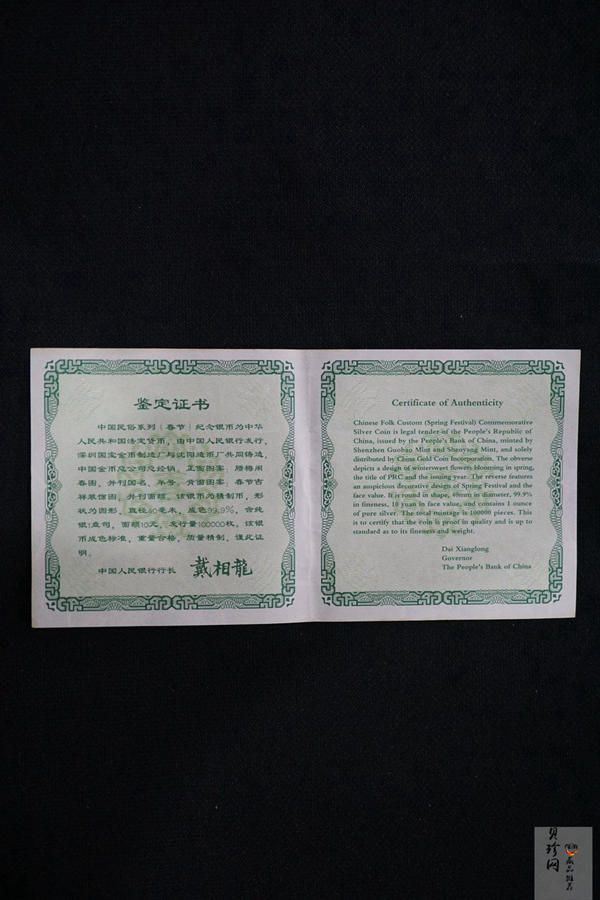 鉴定证书
中国民俗系列（春节）纪念银币为中华
人民共和国法定货币，由中国人民银行发行，
深圳国宝金币制造厂与沈阳造币厂共同铸造，
中国金币总公司总经销。正面图案：腊梅闹
春图，并刊国名、年号。背面图案：春节吉
祥装饰图，并刊面额。该银币为精制币，形
状为圆形，直径40毫米，成色99.9%，含纯
银1盎司，面额10元，发行量100000枚。该银
币成色标准，重量合格，质量精制，谨此证
明。
中国人民银行行长 戴相龍
Certificate of Authenticity
Chinese Folk Custom (Spring Festival) Commemorative
Silver Coin is legal tender of the People's Republic of
China, issued by the People's Bank of China, minted by
Shenzhen Guobao Mint and Shenyang Mint, and solely
distributed by China Gold Coin Incorporation. The obverse
depicts a design of wintersweet flowers blooming in spring,
the title of PRC and the issuing year. The reverse features
an auspicious decorative design of Spring Festival and the
face value. It is round in shape, 40mm in diameter, 99.9%
in fineness, 10 yuan in face value, and contains 1 ounce
of pure silver. The total mintage is 100000 pieces. This is
to certify that the coin is proof in quality and is up to
standard as to its fineness and weight.
Dai Xianglong
Governor
The People's Bank of China
贝珍网
藏品推荐